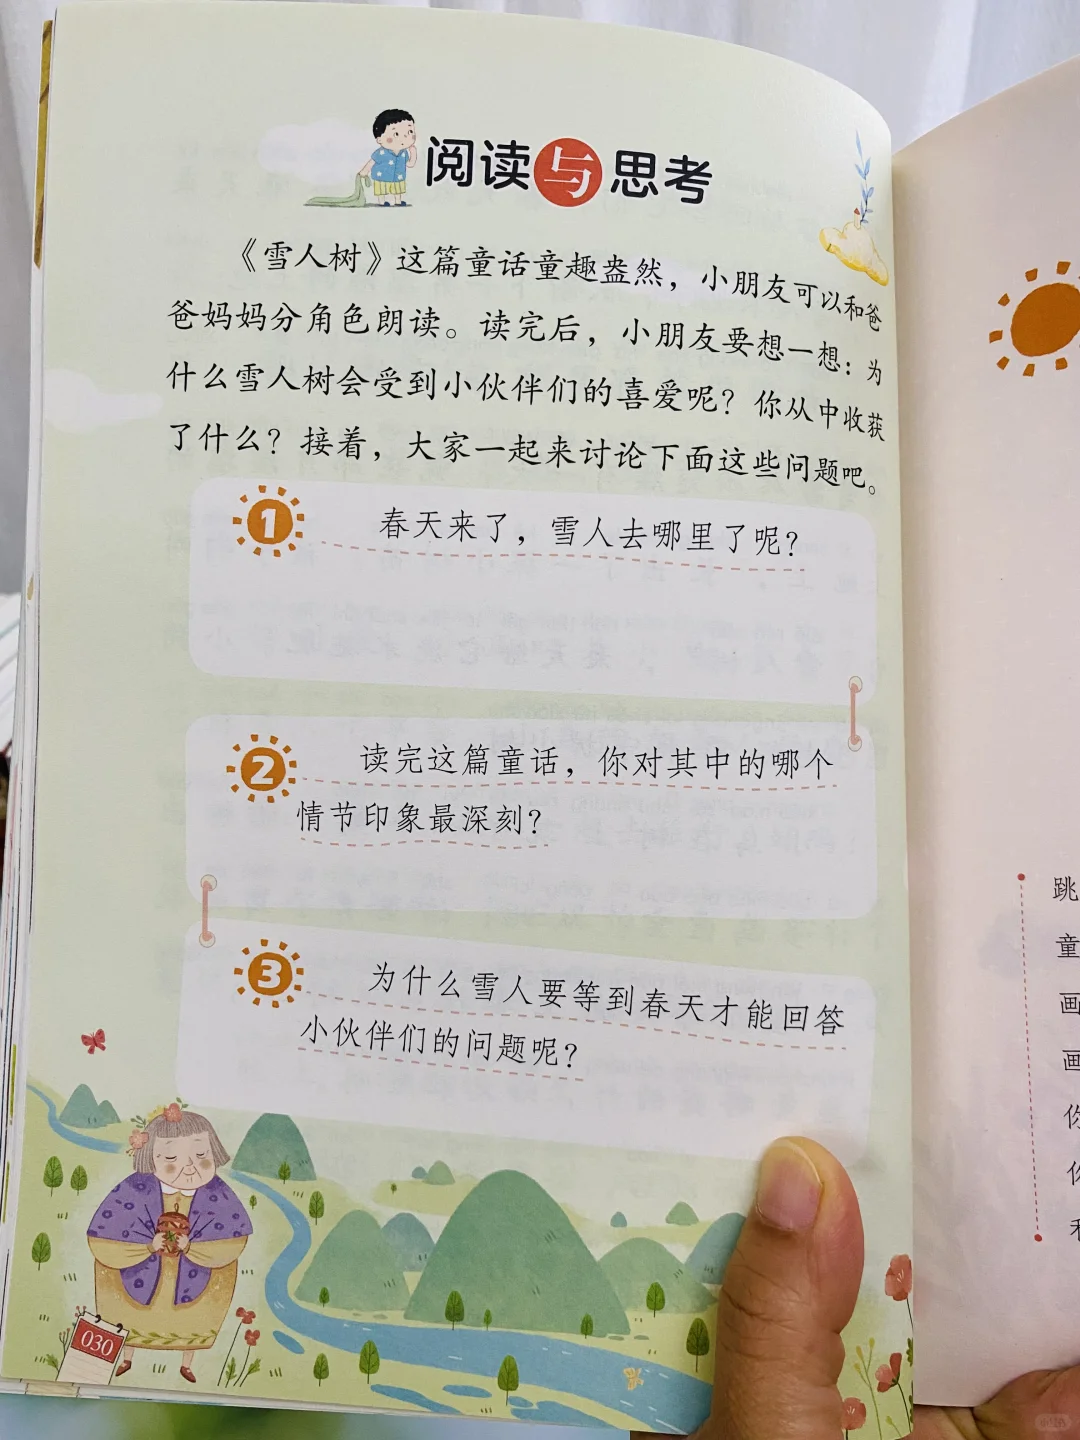 阅读与思考
《雪人树》这篇童话童趣盎然，小朋友可以和爸
爸妈妈分角色朗读。读完后，小朋友要想一想：为
什么雪人树会受到小伙伴们的喜爱呢？你从中收获
了什么？接着，大家一起来讨论下面这些问题吧。
1 春天来了，雪人去哪里了呢？
2 读完这篇童话，你对其中的哪个
情节印象最深刻？
3 为什么雪人要等到春天才能回答
小伙伴们的问题呢？
030
跳
童
画
画
你